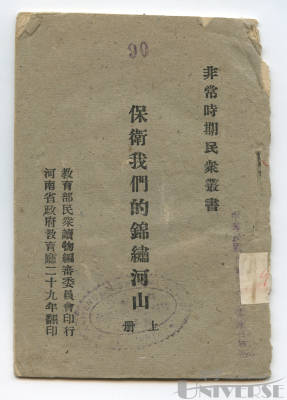 90
非常時期民衆叢書
保衛我們的錦繡河山
上冊
教育部民衆讀物編審委員會印行
河南省政府教育廳二十九年翻印
UNIVERSE